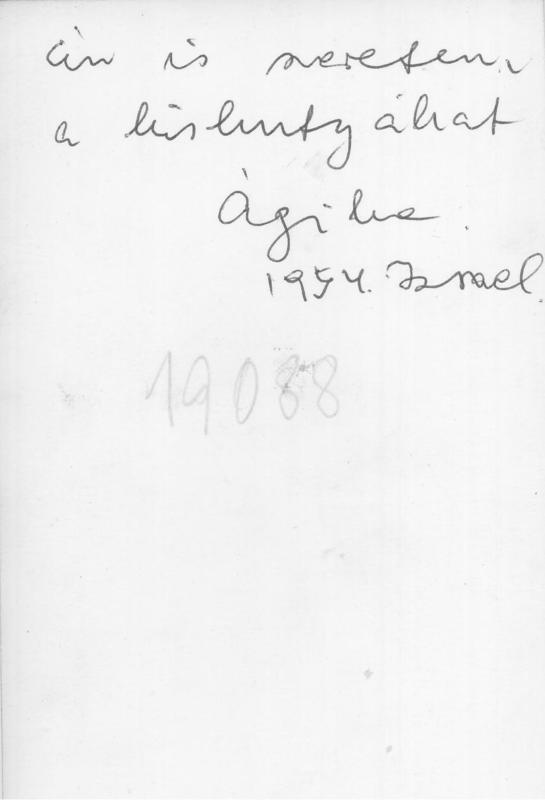 én is szeretem
a kiskutyákat
Ágika.
1954. Izrael.
19088